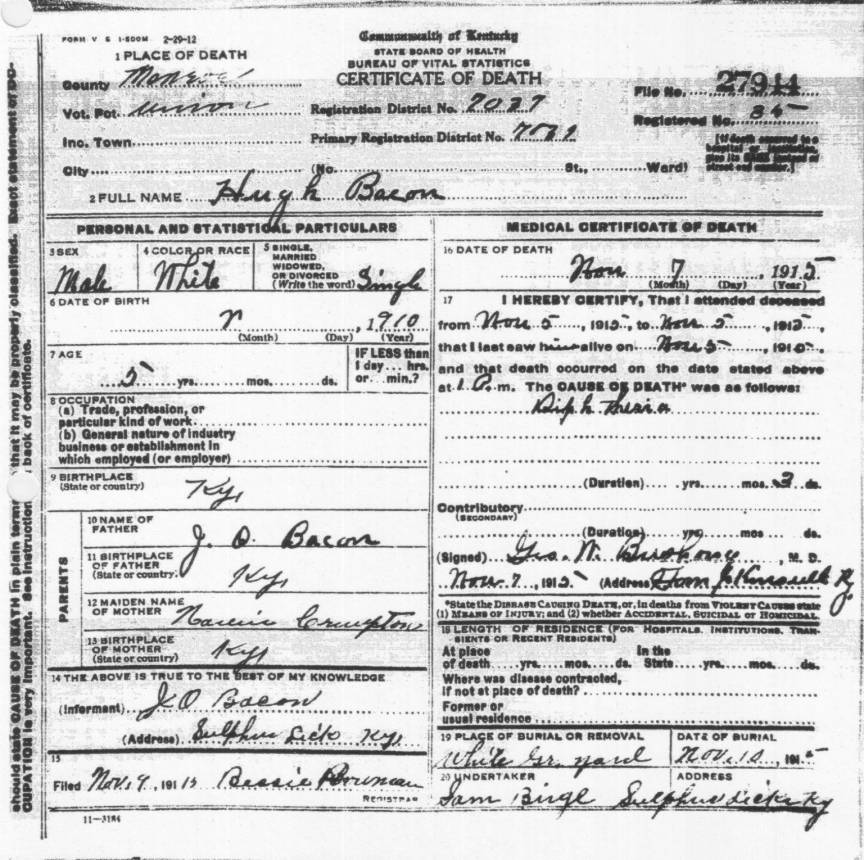 FORM V S 1-500M 2-29-12
Commonwealth of Kentucky
STATE BOARD OF HEALTH
BUREAU OF VITAL STATISTICS
CERTIFICATE OF DEATH
1 PLACE OF DEATH
County Monroe
Vot. Pct. Union
Inc. Town
City (No. St., Ward)
Registration District No. 7027
Primary Registration District No.
File No. 27914
Registered No. 35
[If death occurred in a hospital or institution give its NAME instead of street and number.]
2 FULL NAME Hugh Bacon
PERSONAL AND STATISTICAL PARTICULARS
3 SEX
Male
4 COLOR OR RACE
White
5 SINGLE, MARRIED WIDOWED, OR DIVORCED (Write the word) Single
6 DATE OF BIRTH
, 1910
(Month) (Day) (Year)
7 AGE
5 yrs. mos. ds.
IF LESS than 1 day... hrs. or... min.?
8 OCCUPATION
(a) Trade, profession, or
particular kind of work
(b) General nature of industry
business or establishment in
which employed (or employer)
9 BIRTHPLACE
(State or country)
Ky,
PARENTS
10 NAME OF FATHER
J. O. Bacon
11 BIRTHPLACE OF FATHER
(State or country)
Ky,
12 MAIDEN NAME OF MOTHER
Crumpton
13 BIRTHPLACE OF MOTHER
(State or country)
Ky,
14 THE ABOVE IS TRUE TO THE BEST OF MY KNOWLEDGE
(Informant) J O Bacon
(Address) Sulphur Lick Ky,
15
Filed Nov. 9, 1915 Bessie Bowman
REGISTRAR
11-3184
MEDICAL CERTIFICATE OF DEATH
16 DATE OF DEATH
Nov 7, 1915
(Month) (Day) (Year)
17 I HEREBY CERTIFY, That I attended deceased
from Nov 5, 1915, to Nov 5, 1915,
that I last saw him alive on Nov 5, 1915,
and that death occurred on the date stated above
at 1 P. m. The CAUSE OF DEATH* was as follows:
Diphtheria
(Duration) yrs. mos. 3 ds.
Contributory
(SECONDARY)
(Duration) yrs. mos. ds.
(Signed) Geo. W. Bushong, M. D.
Nov. 7, 1915 (Address) Tompkinsville Ky.
*State the DISEASE CAUSING DEATH, or, in deaths from VIOLENT CAUSES state
(1) MEANS OF INJURY; and (2) whether ACCIDENTAL, SUICIDAL or HOMICIDAL.
18 LENGTH OF RESIDENCE (FOR HOSPITALS, INSTITUTIONS, TRANSIENTS OR RECENT RESIDENTS)
At place of death yrs. mos. ds. In the State yrs. mos. ds.
Where was disease contracted,
if not at place of death?
Former or
usual residence
19 PLACE OF BURIAL OR REMOVAL
White Gr. yard
DATE OF BURIAL
Nov. 10, 1915
20 UNDERTAKER
Sam
ADDRESS
Sulphur Lick Ky
should state CAUSE OF DEATH in plain terms that it may be properly classified. Exact statement of OC-
CUPATION is very important. See instruction back of certificate.